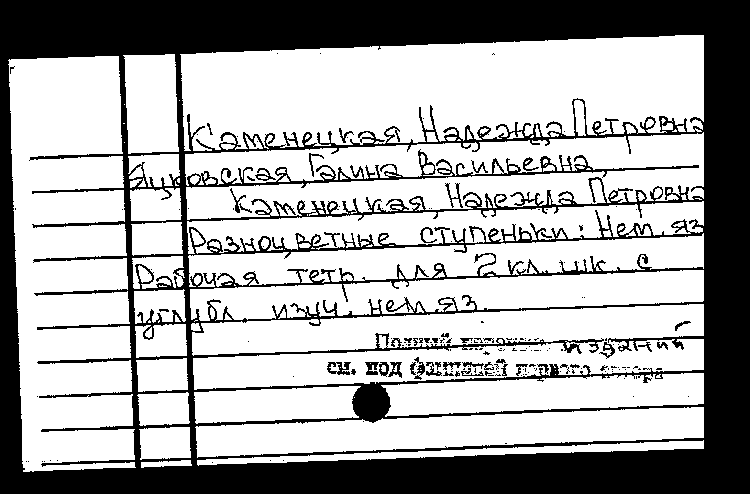 Каменецкая, Надежда Петровна
Яцковская, Галина Васильевна,
Каменецкая, Надежда Петровна
Разноцветные ступеньки: Нем. яз
Рабочая тетр. для 2 кл. шк. с
углубл. изуч. нем. яз.
Полный перечень изданий
см. под фамилией первого автора